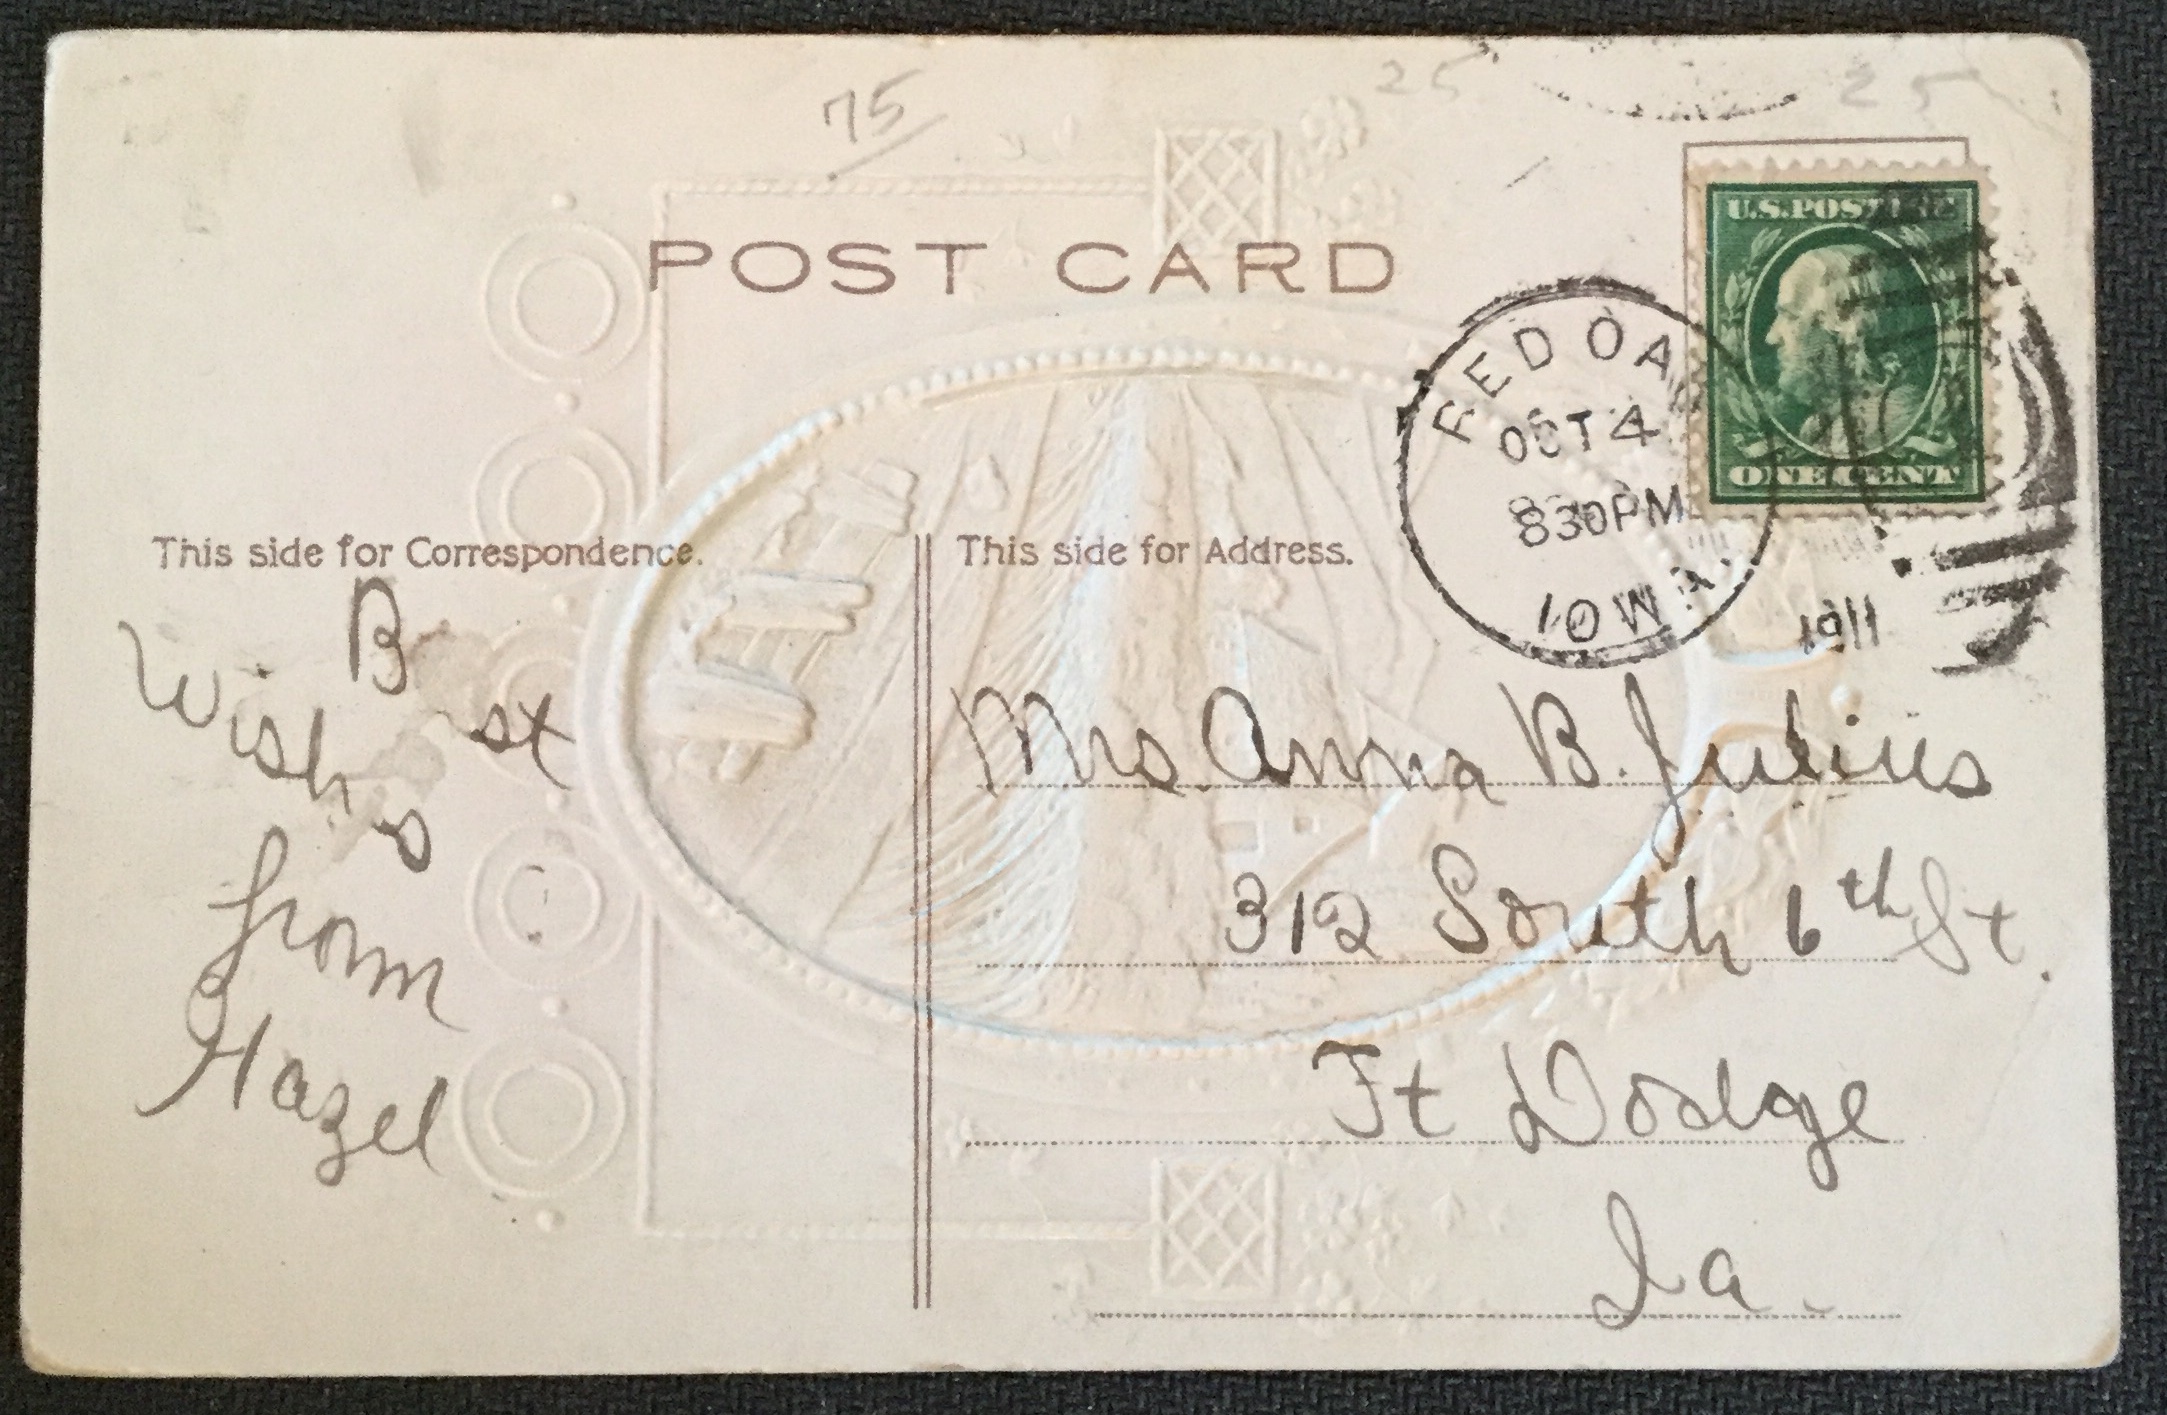 75
25
25
U.S. POSTAGE
POST CARD
RED OAK
OCT 4
830 PM
IOWA.
1911
ONE CENT
This side for Correspondence.
This side for Address.
Best
Wishes
from
Hazel
Mrs. Anna B. Julius
312 South 6th St.
Ft Dodge
Ia.